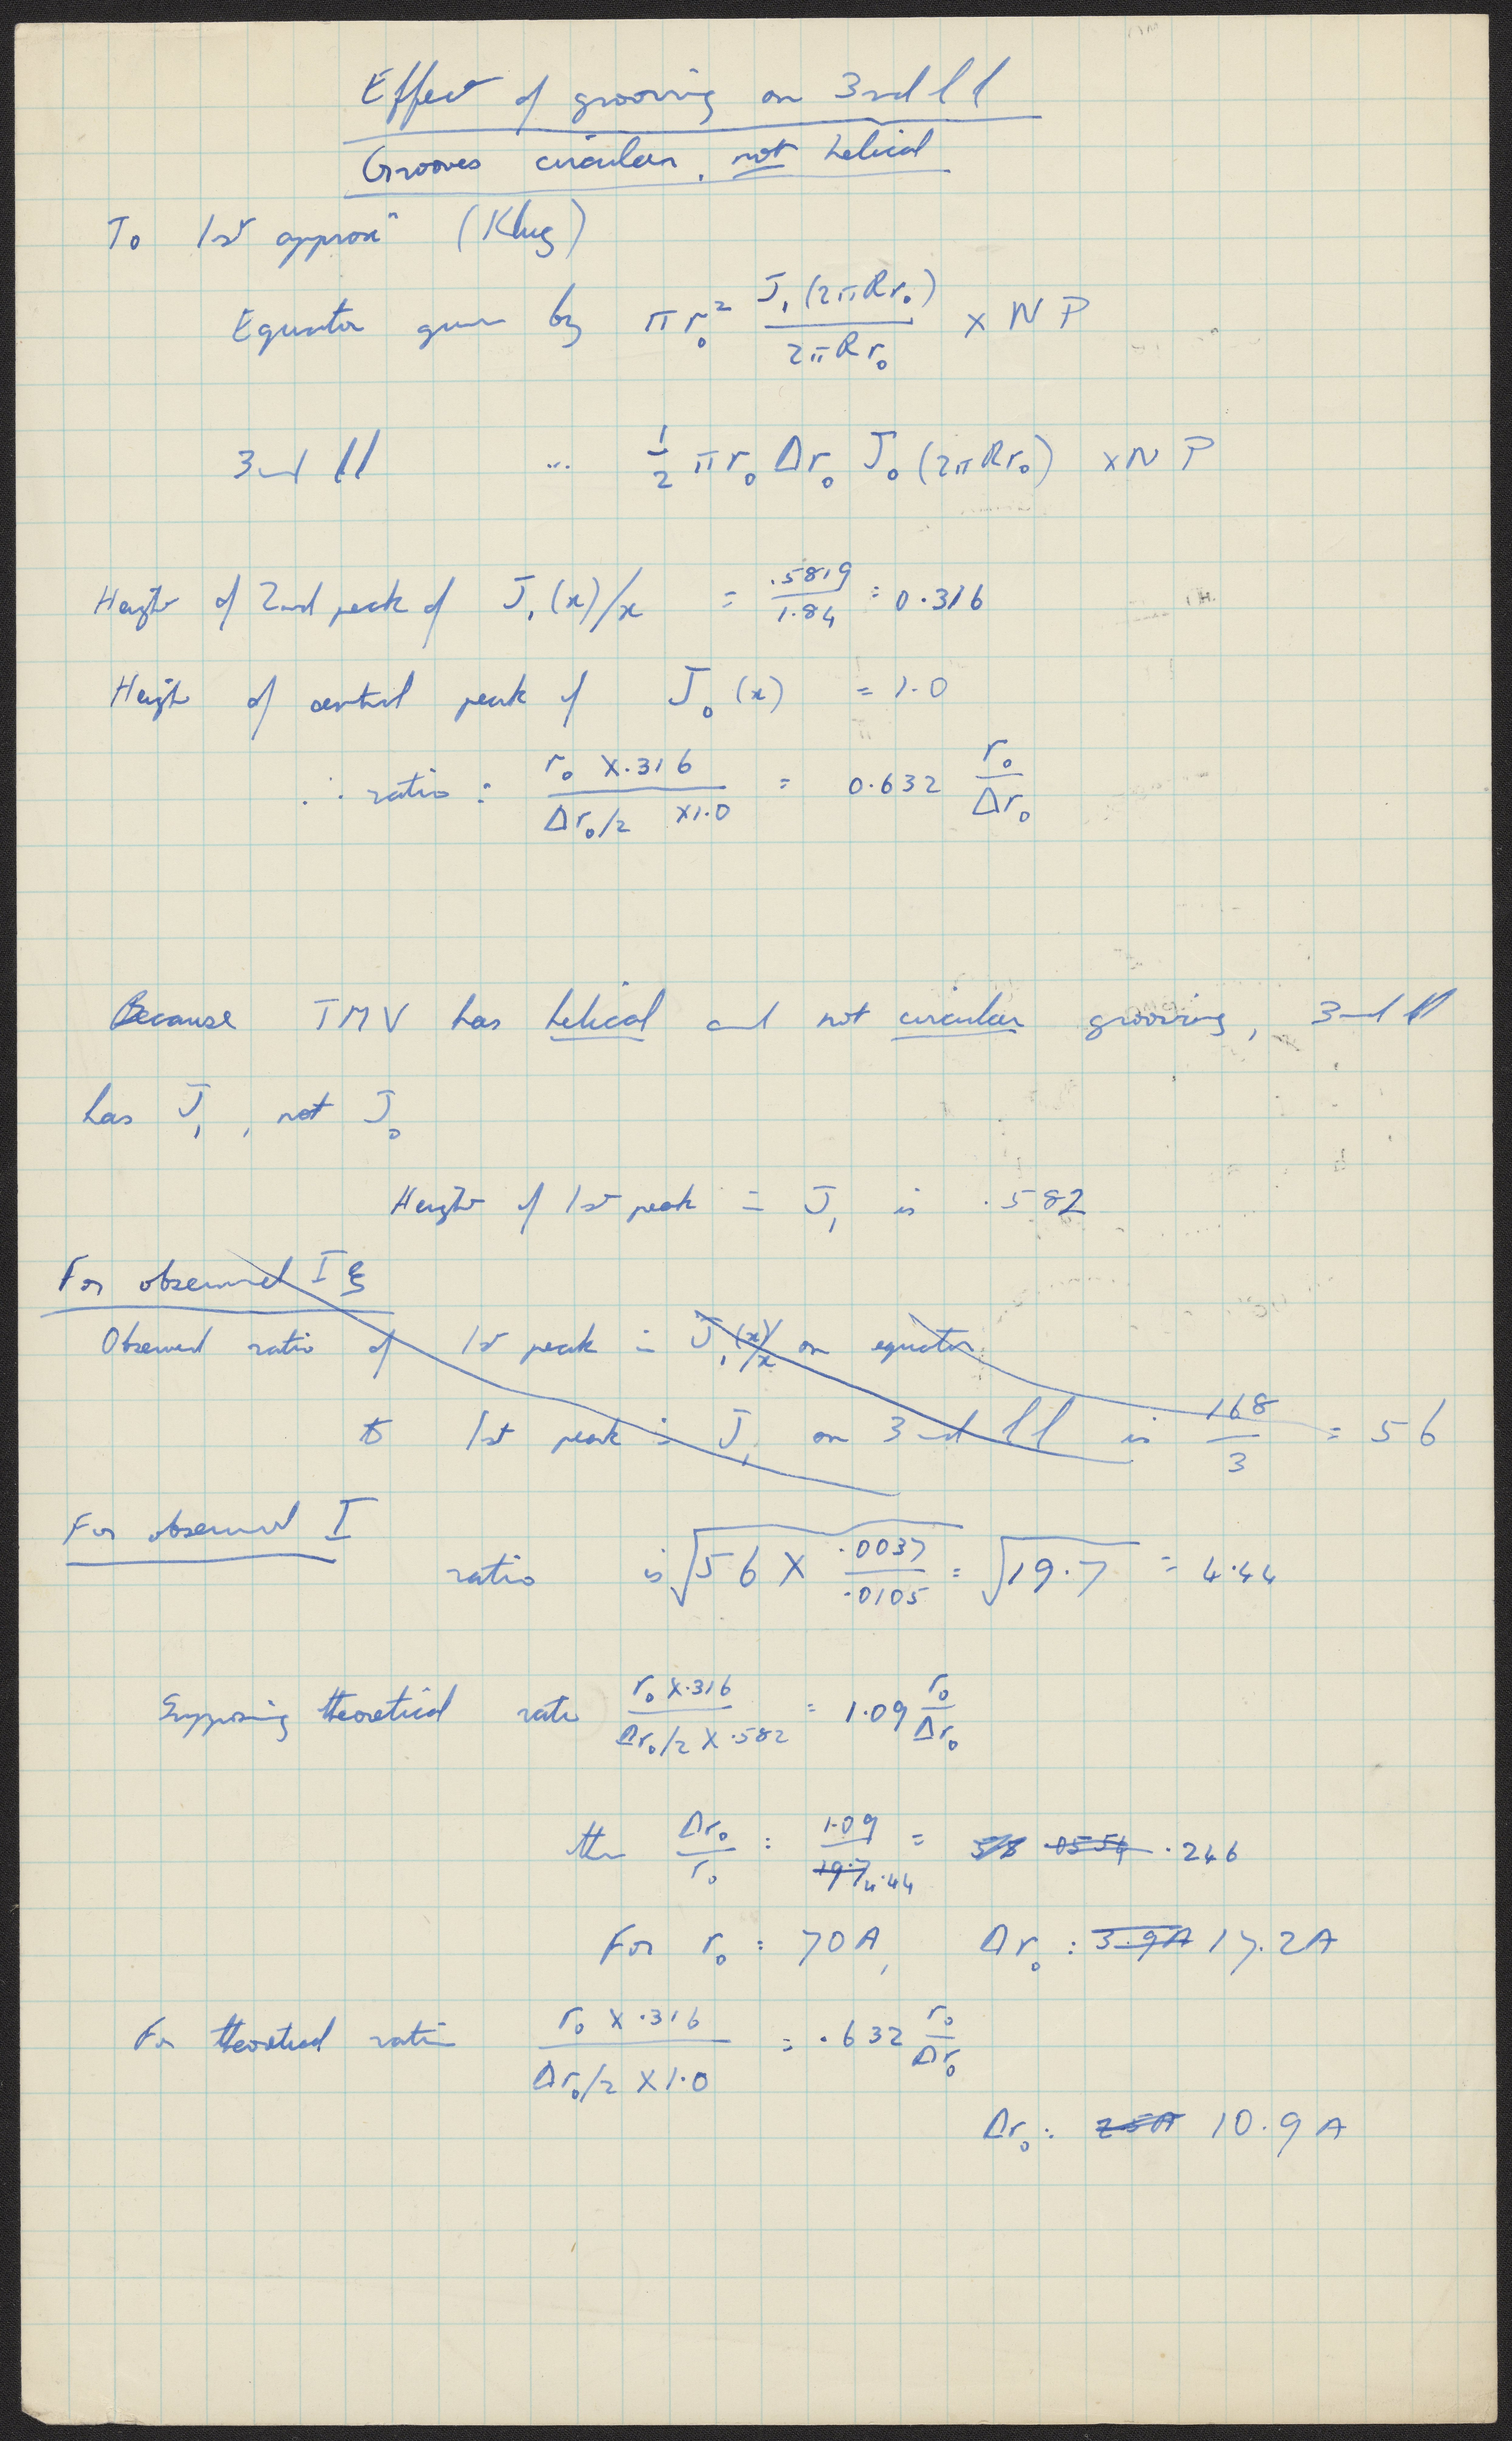 Effect of grooving on 3rd l l
Grooves circular, not helical
To 1st approxn (Klug)
Equator given by πr₀² J₁(2πRr₀) / 2πRr₀ × N P
3rd ll ... ½ πr₀ Δr₀ J₀(2πRr₀) × N P
Height of 2nd peak of J₁(x)/x = .5819 / 1.84 = 0.316
Height of central peak of J₀(x) = 1.0
∴ ratio = r₀ × .316 / Δr₀/2 × 1.0 = 0.632 r₀/Δr₀
Because TMV has helical and not circular grooving, 3rd ll
has J₁, not J₀
Height of 1st peak in J₁ is .582
For observed I ξ
Observed ratio of 1st peak in J₁(x)/x on equator
to 1st peak in J₁ on 3rd ll is 168/3 = 56
For observed I
ratio is √56 × .0037/.0105 = √19.7 = 4.44
Supposing theoretical ratio r₀ × .316 / Δr₀/2 × .582 = 1.09 r₀/Δr₀
then Δr₀/r₀ = 1.09 / 19.7 4.44 = .0554 .246
For r₀ = 70A, Δr₀ = 3.9A 17.2A
For theoretical ratio r₀ × .316 / Δr₀/2 × 1.0 = .632 r₀/Δr₀
Δr₀ = 10.9 A